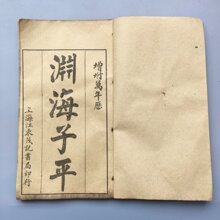 增增萬年歷
淵海子平
上海江東茂記書局印行